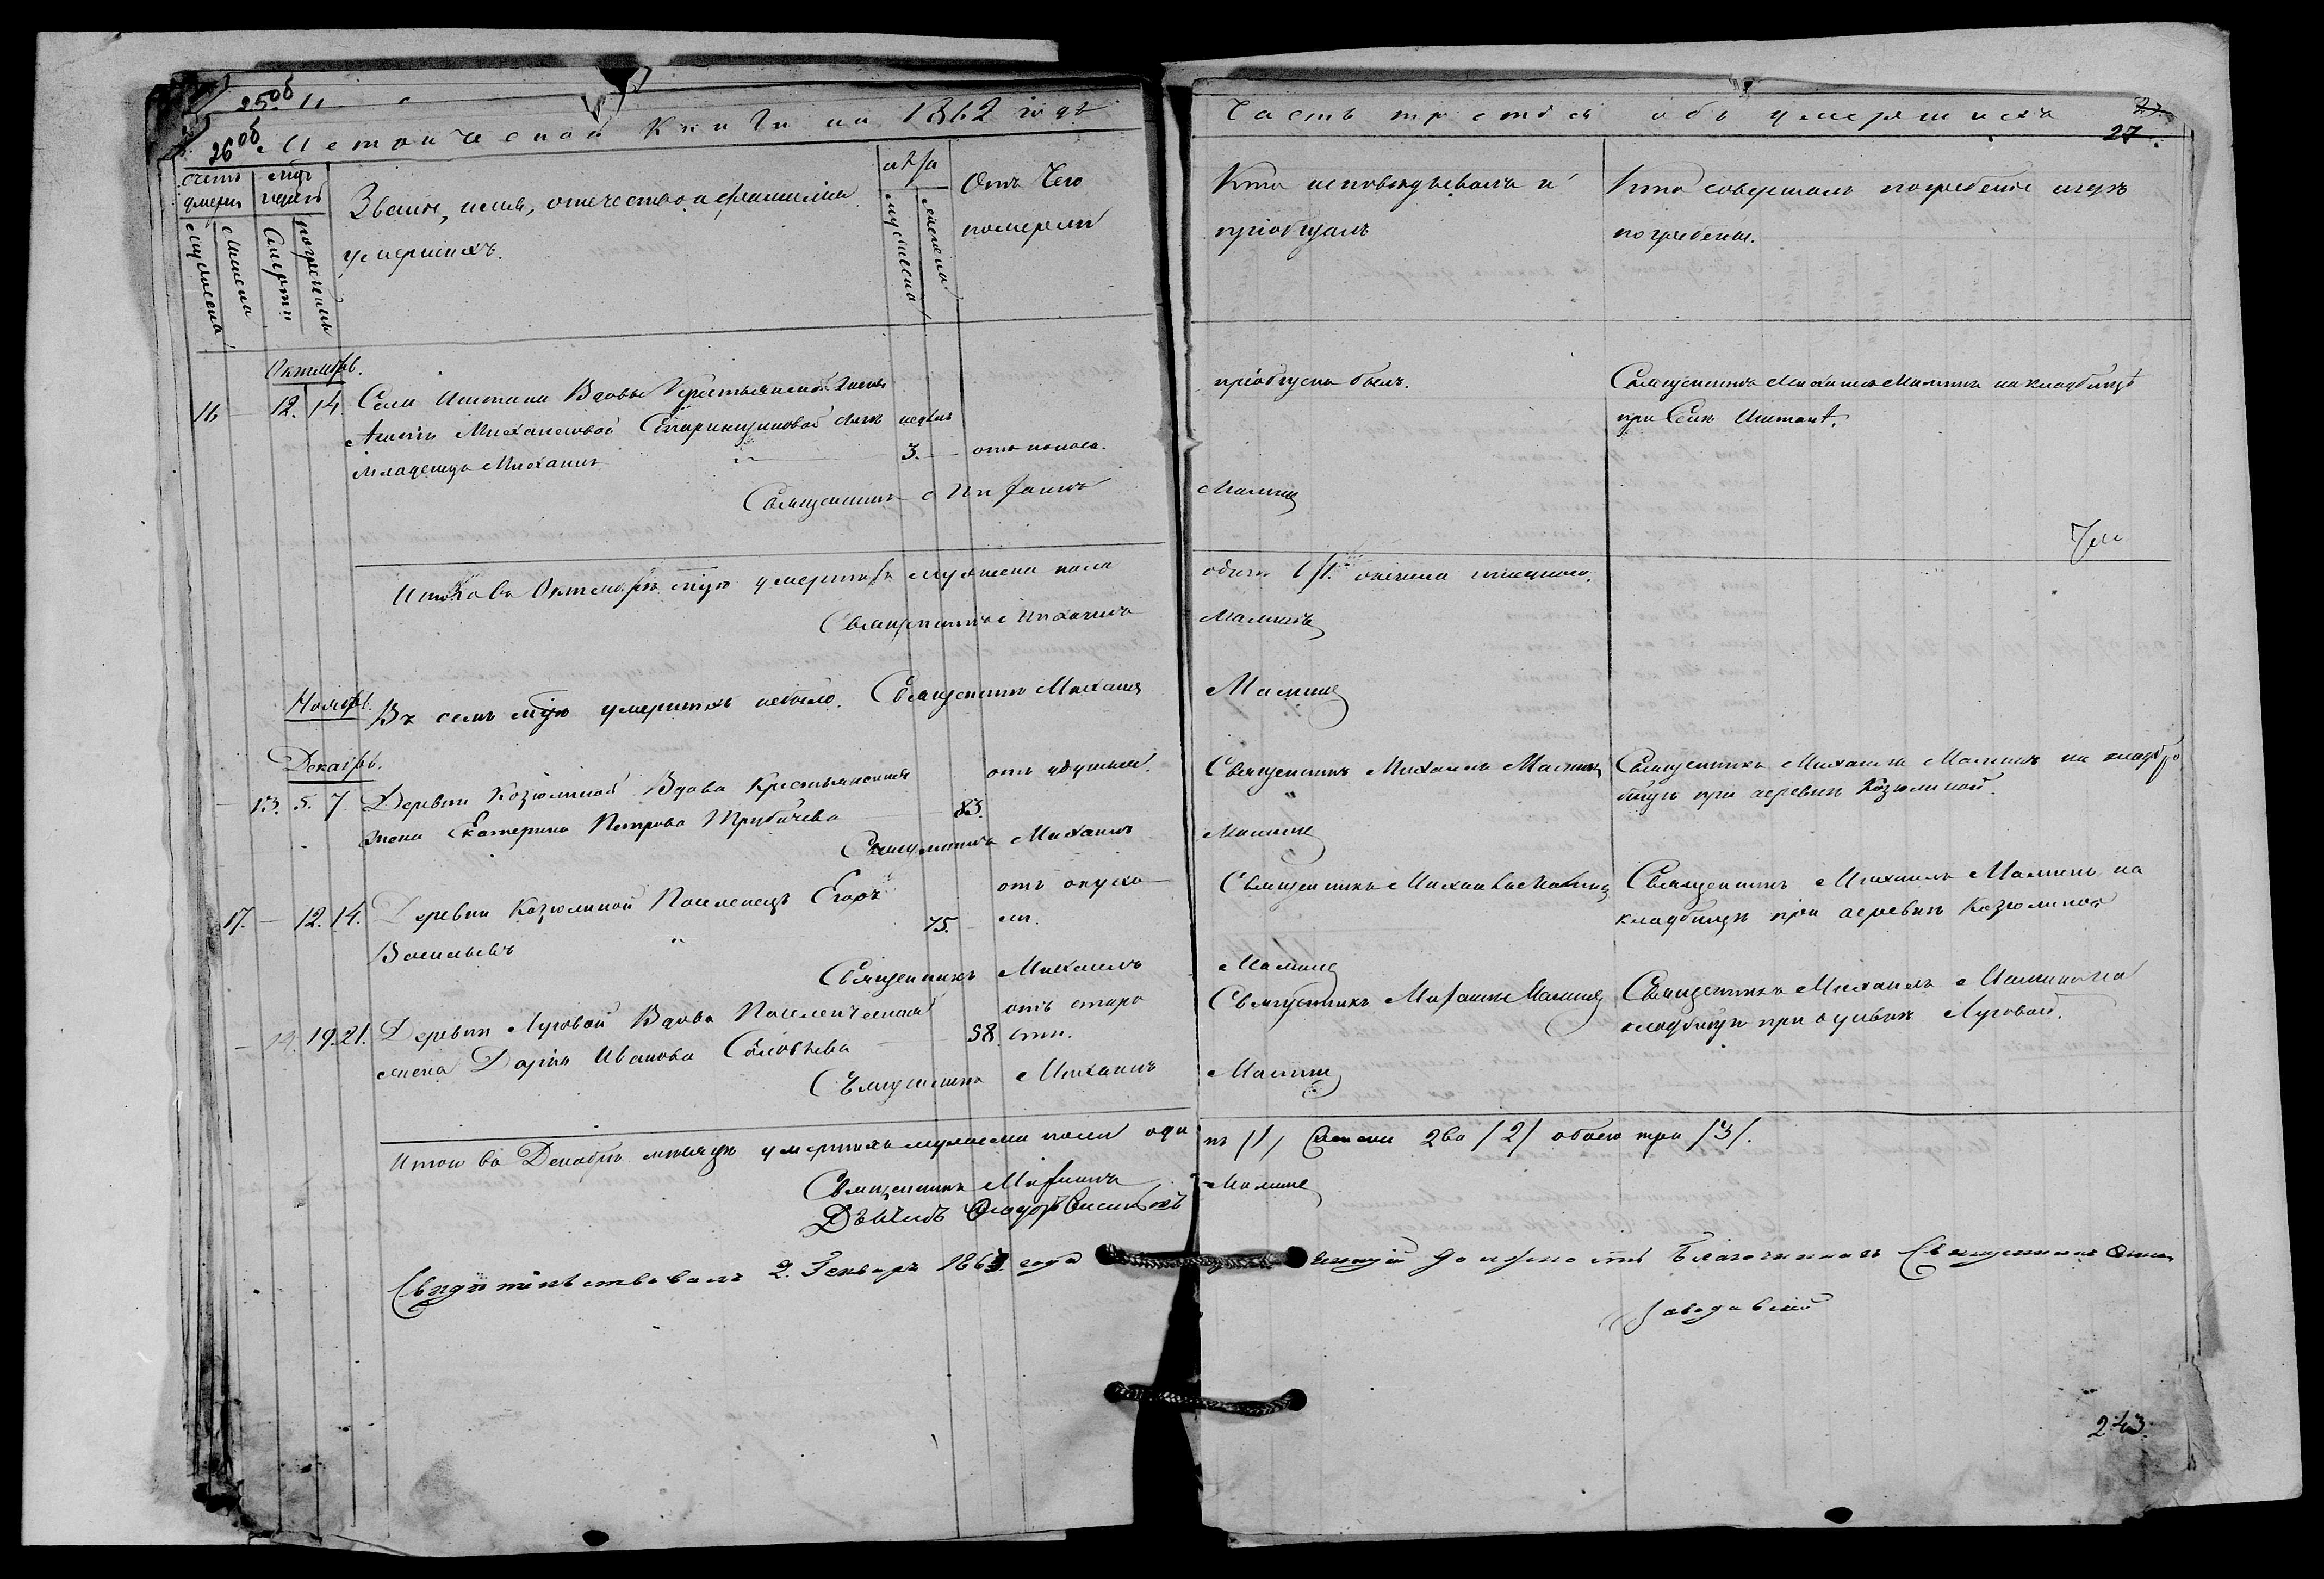 25об
26об
Метрической Книги на 1862 годъ
Часть третья объ умершихъ
27.
Счетъ умерш
Мужеска
Женска
мцъ и день
Смерти
погребенія
Званіе, имя, отечество и фамилія
умершихъ.
лѣта
мужеска
женска
Отъ чего
померли
Кто исповѣдывалъ и
пріобщалъ
Кто совершалъ погребеніе и гдѣ
погребены.
Октябрь.
16 — 12. 14. Села Иштана Вдовы Крестьянской жены
Михайловой сынъ недѣль
младенецъ Михаилъ 3. — отъ поноса.
пріобщенъ былъ.
Священникъ Михаилъ Малинъ на кладбищѣ
при Селѣ Иштанѣ.
Священникъ Михаилъ Малинъ
Итого въ Октябрѣ мцѣ умершихъ мужеска пола одинъ /1/.
Священникъ Михаилъ Малинъ
Ноябрь. Въ семъ мцѣ умершихъ небыло. Священникъ Михаилъ Малинъ
Декабрь.
— 13. 5. 7. Деревни Козюлиной Вдова Крестьянская
жена Екатерина Петрова Трубачева 83.
отъ удушья.
Священникъ Михаилъ Малинъ
Священникъ Михаилъ Малинъ на кладбищѣ при деревнѣ Козюлиной.
Священникъ Михаилъ Малинъ
17. — 12. 14. Деревни Козюлиной Поселенецъ Егоръ
Васильевъ 75.
отъ опухоли.
Священникъ Михаилъ Малинъ
Священникъ Михаилъ Малинъ на
кладбищѣ при деревнѣ Козюлиной
Священникъ Михаилъ Малинъ
— 14. 19. 21. Деревни Луговой Вдова Поселенческая
жена Дарья Иванова Соловьева 98.
отъ старости.
Священникъ Михаилъ Малинъ
Священникъ Михаилъ Малинъ на
кладбищѣ при деревнѣ Луговой.
Священникъ Михаилъ Малинъ
Итого въ Декабрѣ месяцѣ умершихъ мужеска пола одинъ /1/ женска два /2/ обоего три /3/.
Священникъ Михаилъ Малинъ
Дьячекъ
Свидѣтельствовалъ 2. Генваря 1863 года должность Благочиннаго Священникъ
243.